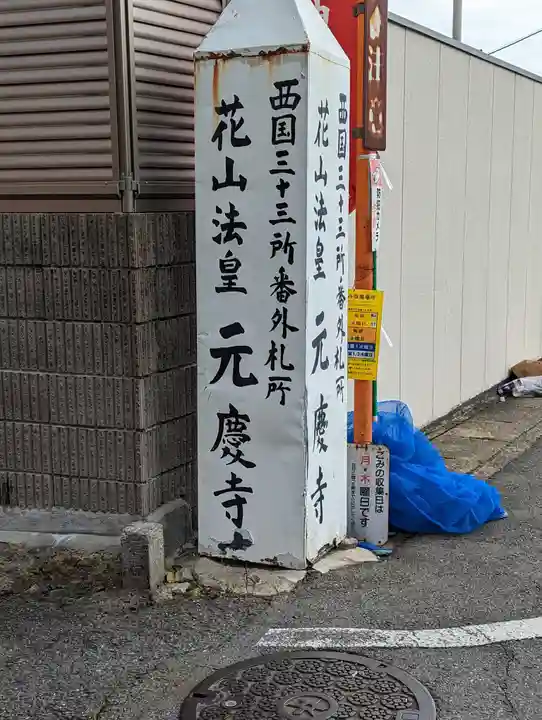 西国三十三所番外札所
花山法皇 元慶寺
西国三十三所番外札所
花山法皇 元慶寺
防犯カメラ
ごみの収集日は
月・木曜日です